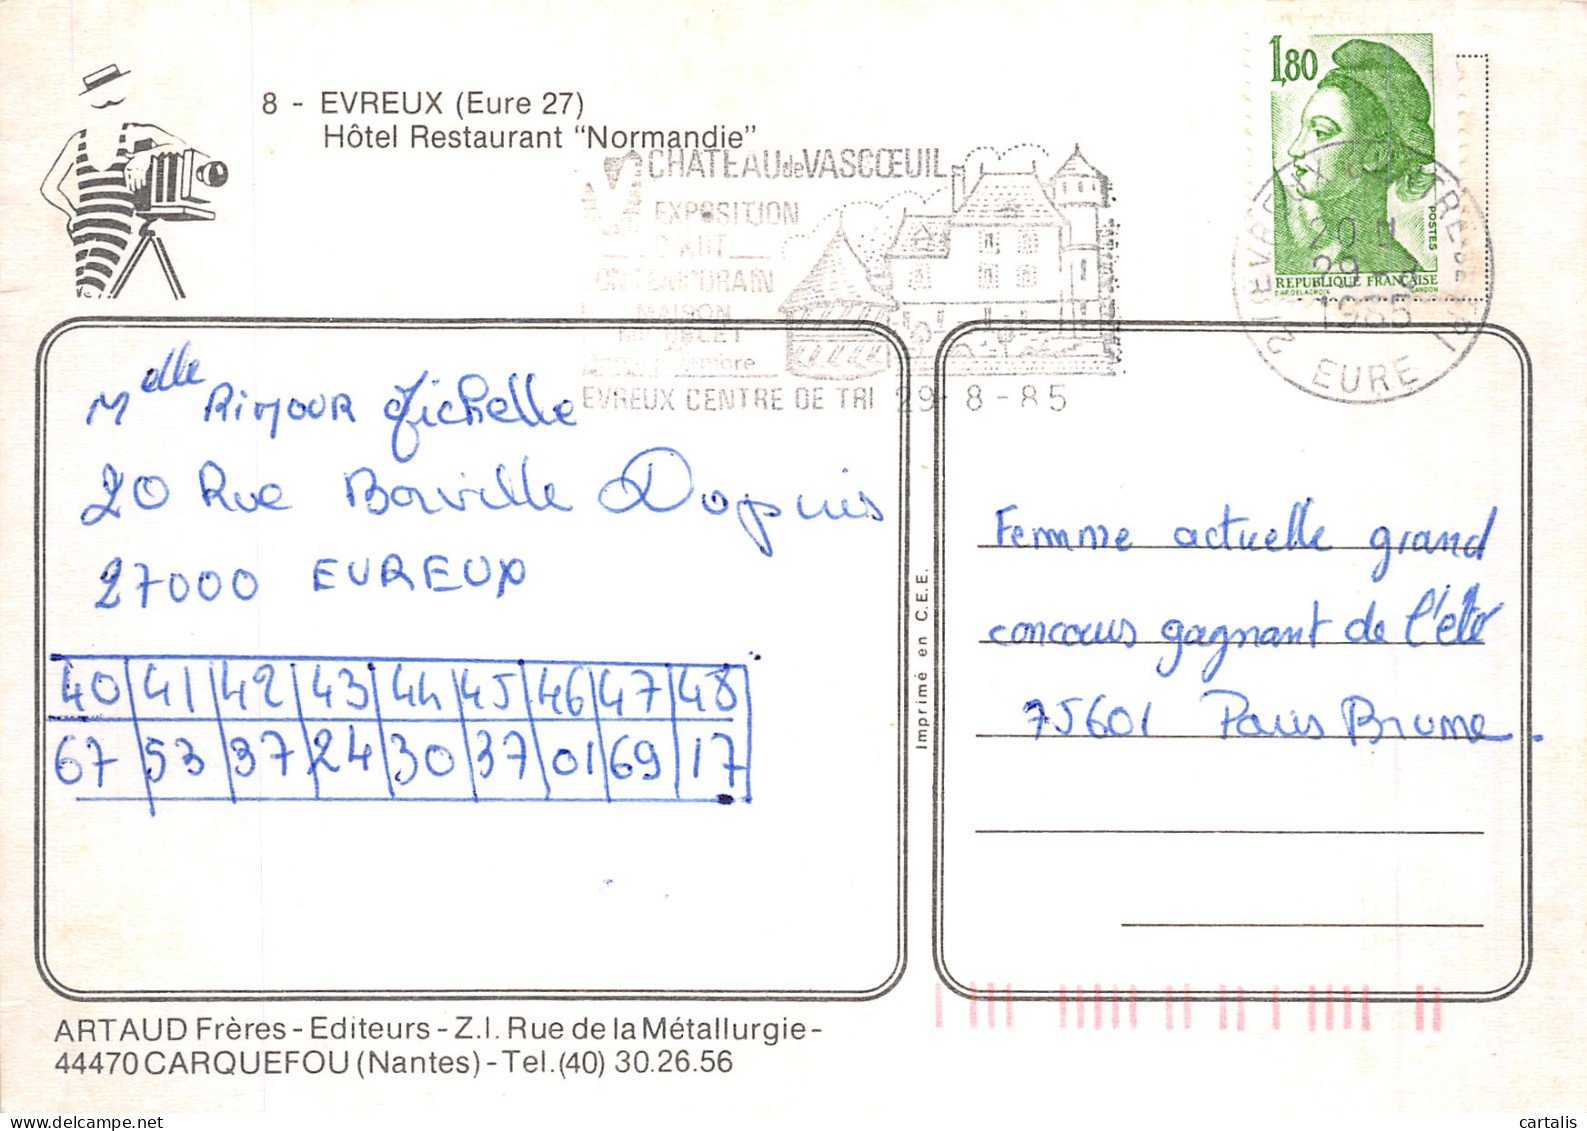 8 - EVREUX (Eure 27)
Hôtel Restaurant "Normandie"
CHATEAU de VASCŒUIL
EXPOSITION
D'ART
CONTEMPORAIN
MAISON
MICHELET
EVREUX CENTRE DE TRI 29-8-85
1,80
POSTES
REPUBLIQUE FRANÇAISE
D'AP. DELACROIX GANDON
20 H
29-8
1985
EURE
Melle Rimjour Michelle
20 Rue Borville Dupuis
27000 EVREUX
40 41 42 43 44 45 46 47 48
67 53 37 24 30 37 01 69 17
Imprimé en C.E.E.
Femme actuelle grand
concours gagnant de l'été
75601 Paris Brune.
ARTAUD Frères - Editeurs - Z.I. Rue de la Métallurgie -
44470 CARQUEFOU (Nantes) - Tel. (40) 30.26.56
cartalis